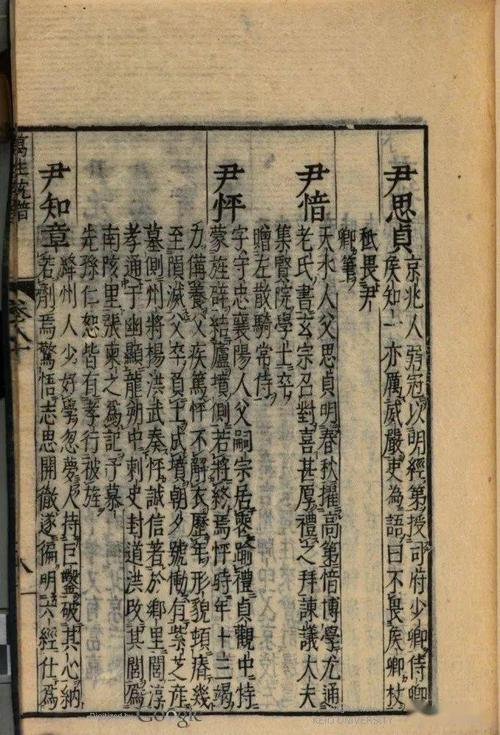 尹思貞
京兆人弱冠以明經第授司府少卿侍卿
侯知一亦厲威嚴吏為語曰不畏侯卿杖
祗畏尹
卿筆
尹愔
天水人父思貞明春秋擢高第愔博學尤通
老氏書玄宗召對喜甚厚禮之拜諫議大夫
集賢院學士卒
贈左散騎常侍
尹怦
字守忠襄陽人父嗣宗居喪踰禮貞觀中特
蒙旌辟結廬墳側若將終焉怦時年十三竭
力備養父疾篤怦不解衣歷年形貌頓瘠幾
至隕滅父卒負土成墳朝夕號慟有紫芝產
墓側州將楊洪武奏怦誠信著於鄉里閭淳
孝通于幽顯龍朔中刺史封道洪改其閭為
南陔里張柬之為記子慕
先孫仁恕皆有孝行被旌
尹知章
絳州人少好學忽夢人持曰鑿破其心納
若劑焉驚悟志思開徹遂徧明六經仕為
萬姓統譜
卷八十
Digitized by Google
KEIO UNIVERSITY